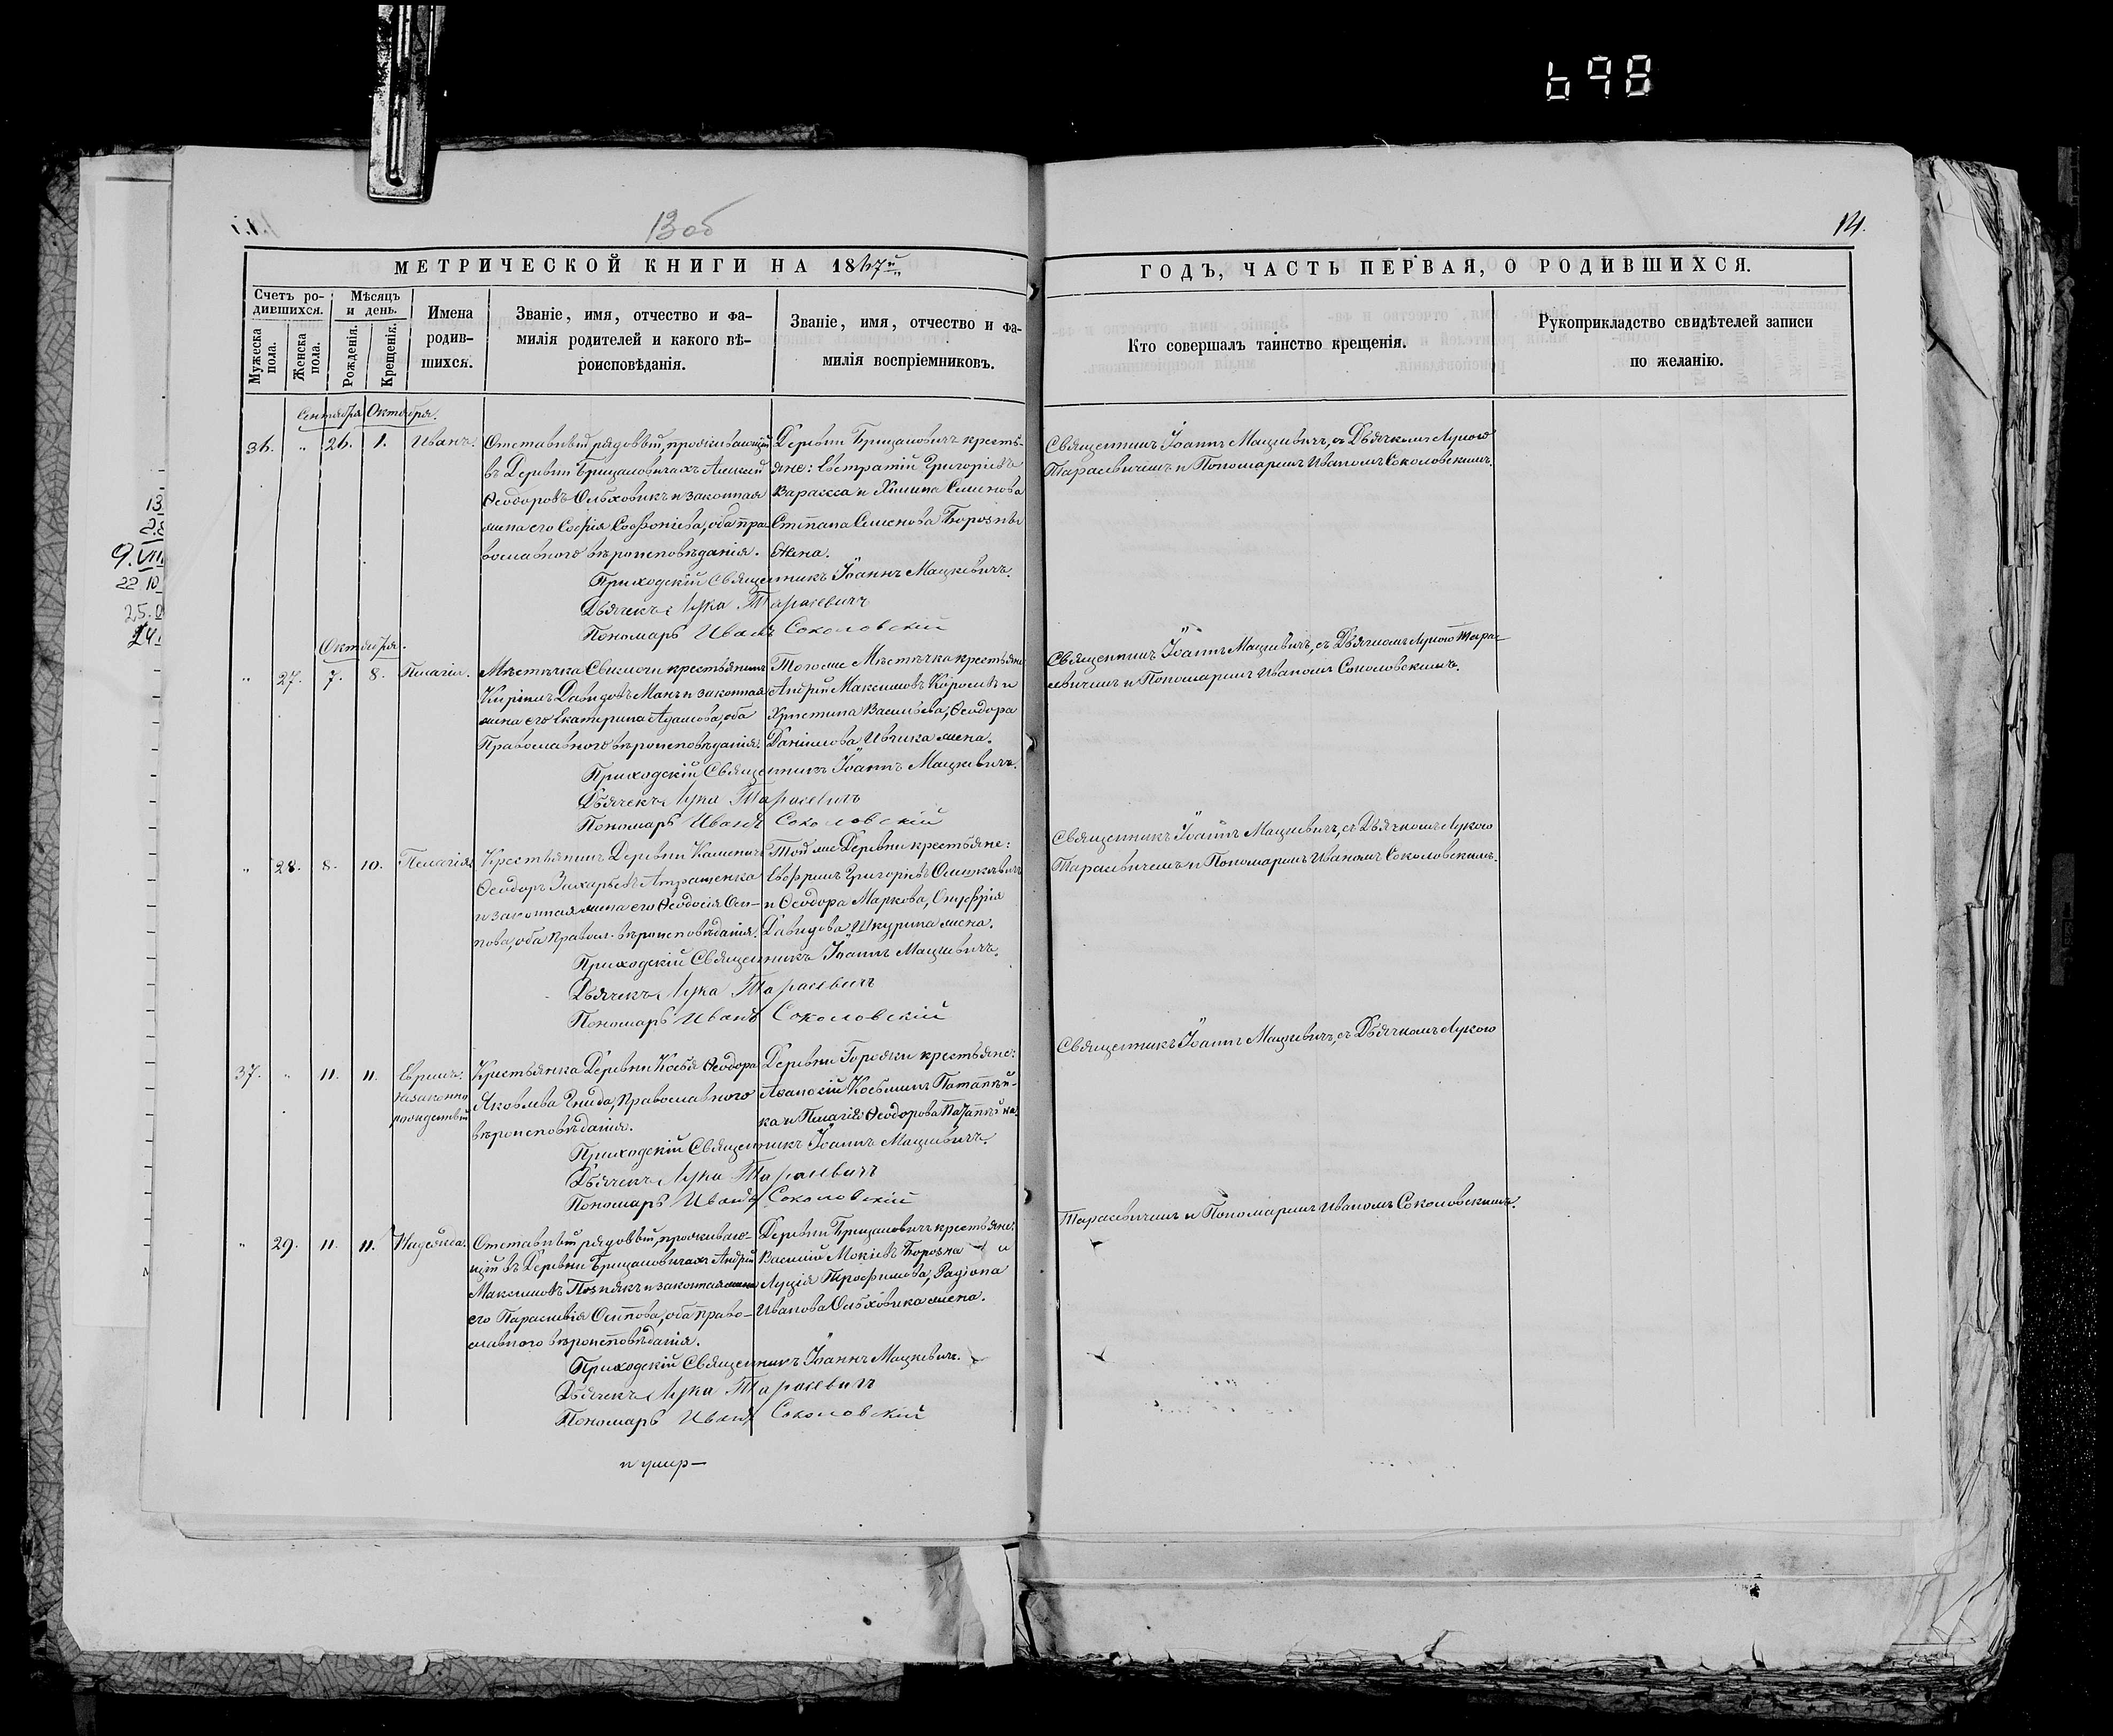 698
13об
14.
МЕТРИЧЕСКОЙ КНИГИ НА 1867й
ГОДЪ, ЧАСТЬ ПЕРВАЯ, О РОДИВШИХСЯ.
Счетъ ро-
дившихся.
Мужеска пола.
Женска пола.
Мѣсяцъ
и день.
Рожденія.
Крещенія.
Имена
родив-
шихся.
Званіе, имя, отчество и фа-
милія родителей и какого вѣ-
роисповѣданія.
Званіе, имя, отчество и фа-
милія воспріемниковъ.
Кто совершалъ таинство крещенія.
Рукоприкладство свидѣтелей записи
по желанію.
Сентября Октября.
36. " 26. 1. Иванъ.
Отставный рядовый, проживающій
въ Деревни Брицаловичахъ Алексій
Ѳеодоровъ Ольховикъ и законная
жена его Софія Софоніева, оба пра-
вославного вѣроисповѣданія.
Деревни Брицаловичъ кресть-
яне: Евстратій Григоріевъ
и Семенова
Степана Семенова Борозны
жена.
Приходскій Священникъ Іоаннъ Мацкевичъ.
Дьячекъ Лука Тарасевичъ
Пономарь Иванъ Соколовскій
Священникъ Іоаннъ Мацкевичъ, съ Дьячкомъ Лукою
Тарасевичемъ и Пономаремъ Иваномъ Соколовскимъ.
Октября.
" 27. 7. 8. Пелагія.
Мѣстечка Свислочи крестьянинъ
Давидовъ и законная
жена его Екатерина Адамова, оба
Православного вѣроисповѣданія.
Того же Мѣстечка крестьяне
Андрей Максимовъ Король и
Христина Васильева, Ѳеодора
Даніилова Ивчика жена.
Приходскій Священникъ Іоаннъ Мацкевичъ.
Дьячекъ Лука Тарасевичъ
Пономарь Иванъ Соколовскій
Священникъ Іоаннъ Мацкевичъ, съ Дьячкомъ Лукою Тарас-
евичемъ и Пономаремъ Иваномъ Соколовскимъ.
" 28. 8. 10. Пелагія.
Крестьянинъ Деревни Каменичъ
Ѳеодоръ Захарьевъ Атращенка
и законная жена его Ѳеодосія Оси-
пова, оба правосл. вѣроисповѣданія.
Той же Деревни крестьяне:
Григоріевъ
и Ѳеодора Маркова, Онуфрія
Давидова Шкурина жена.
Приходскій Священникъ Іоаннъ Мацкевичъ.
Дьячекъ Лука Тарасевичъ
Пономарь Иванъ Соколовскій
Священникъ Іоаннъ Мацкевичъ, съ Дьячкомъ Лукою
Тарасевичемъ и Пономаремъ Иваномъ Соколовскимъ.
37. " 11. 11.
незаконно
Крестьянка Деревни Ѳеодора
Яковлева Гнида, Православного
вѣроисповѣданія.
Деревни Горожи крестьяне:
и Пелагія Ѳеодорова
Приходскій Священникъ Іоаннъ Мацкевичъ.
Дьячекъ Лука Тарасевичъ
Пономарь Иванъ Соколовскій
Священникъ Іоаннъ Мацкевичъ, съ Дьячкомъ Лукою
Тарасевичемъ и Пономаремъ Иваномъ Соколовскимъ.
" 29. 11. 11. Надежда.
Отставный рядовый, прожива-
щій въ Деревни Брицаловичахъ Андрей
Максимовъ Познякъ и законная жена
его Параскевія Осипова, оба право-
славного вѣроисповѣданія.
Деревни Брицаловичъ крестьяне:
Василій Мокіевъ Борозна и
Луція Трофимова, Радіона
Иванова Ольховика жена.
Приходскій Священникъ Іоаннъ Мацкевичъ.
Дьячекъ Лука Тарасевичъ
Пономарь Иванъ Соколовскій